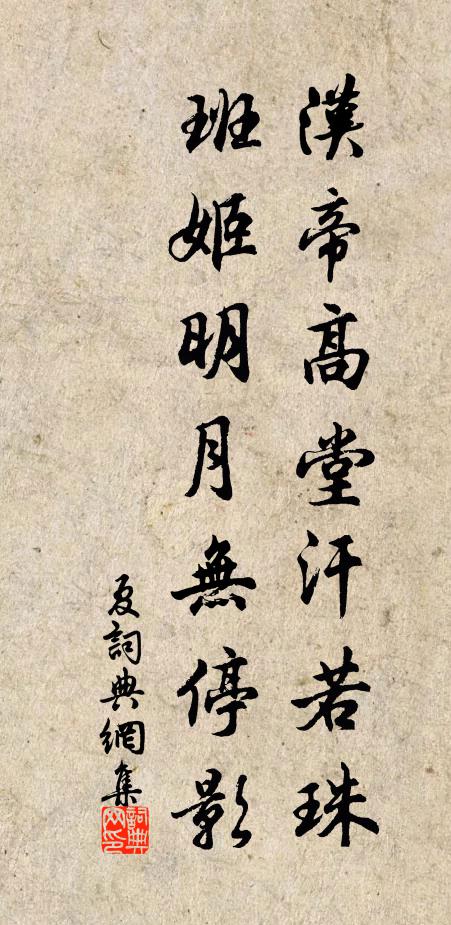 漢帝高堂汗若珠
班姬明月無停影
夏詞典網集
詞典
网印